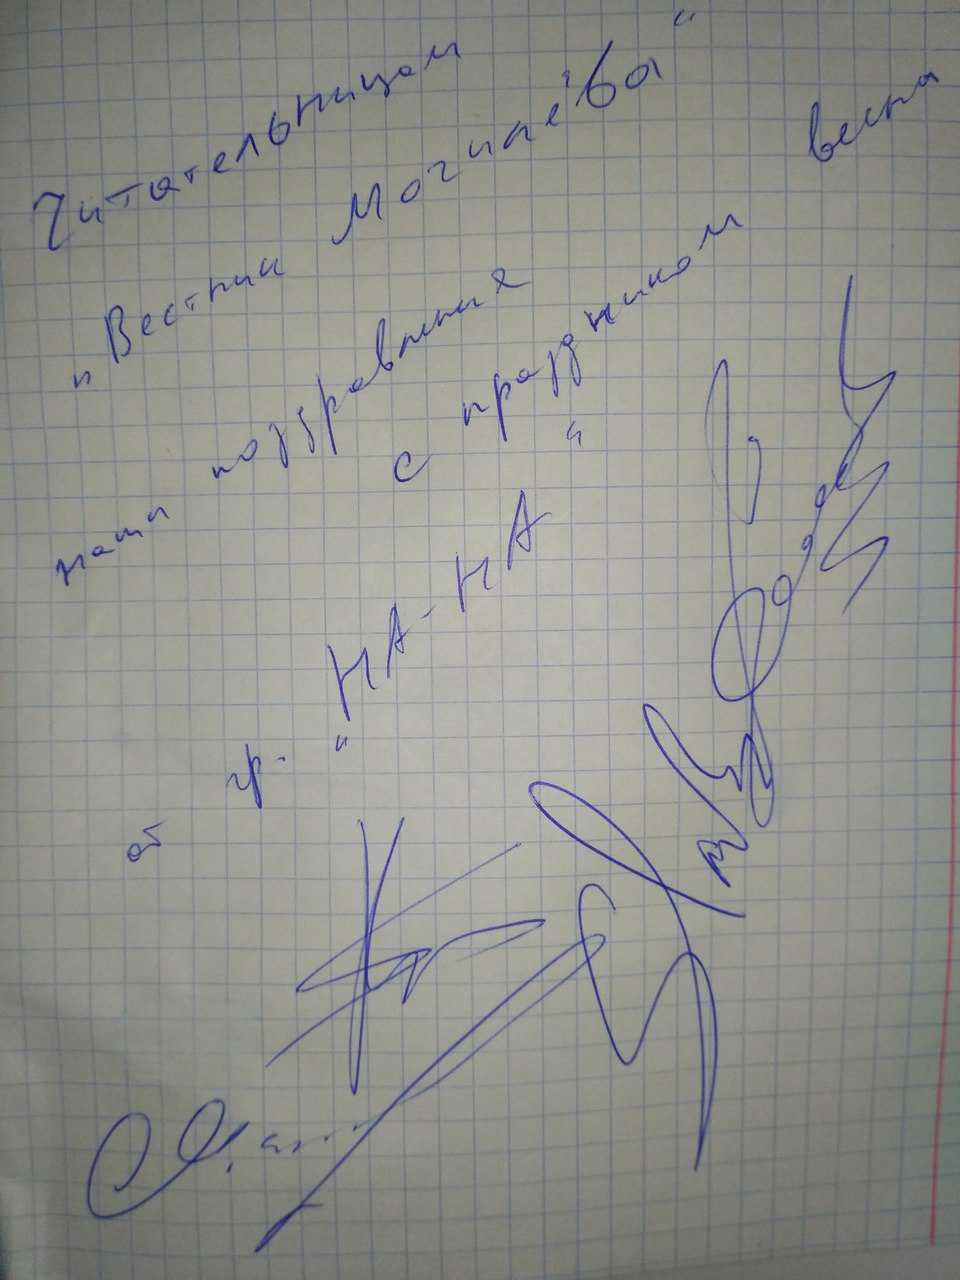 Читательницам
"Вестник Могилёва"
наши поздравления
с праздником весны
от гр. "НА-НА"